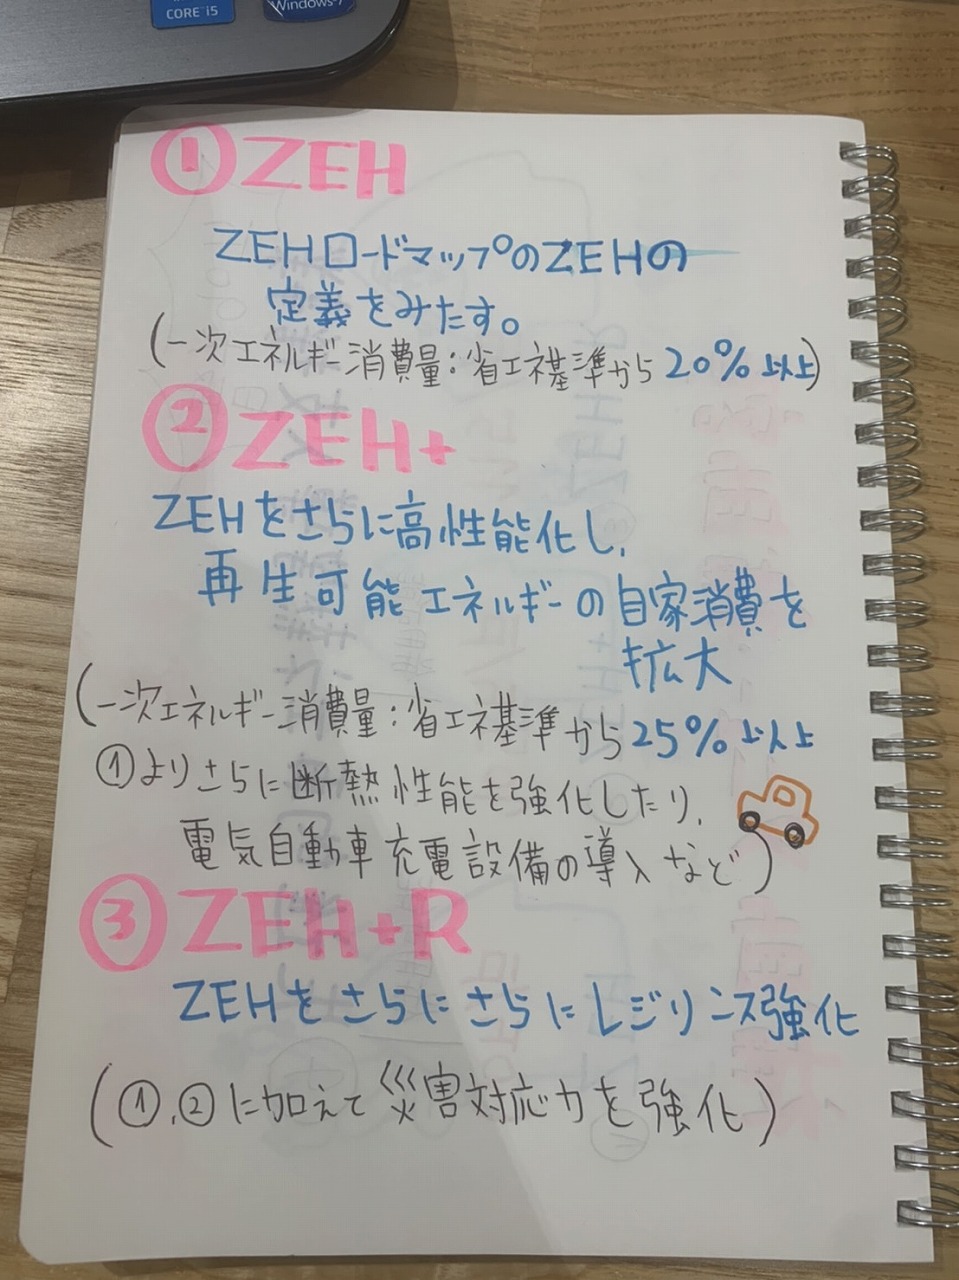 CORE i5
Windows 7
① ZEH
ZEHロードマップのZEHの
定義をみたす。
(一次エネルギー消費量:省エネ基準から20%以上)
② ZEH+
ZEHをさらに高性能化し、
再生可能エネルギーの自家消費を
拡大
(一次エネルギー消費量:省エネ基準から25%以上
①よりさらに断熱性能を強化したり、
電気自動車充電設備の導入など)
③ ZEH+R
ZEHをさらにさらにレジリンス強化
(①、②に加えて災害対応力を強化)